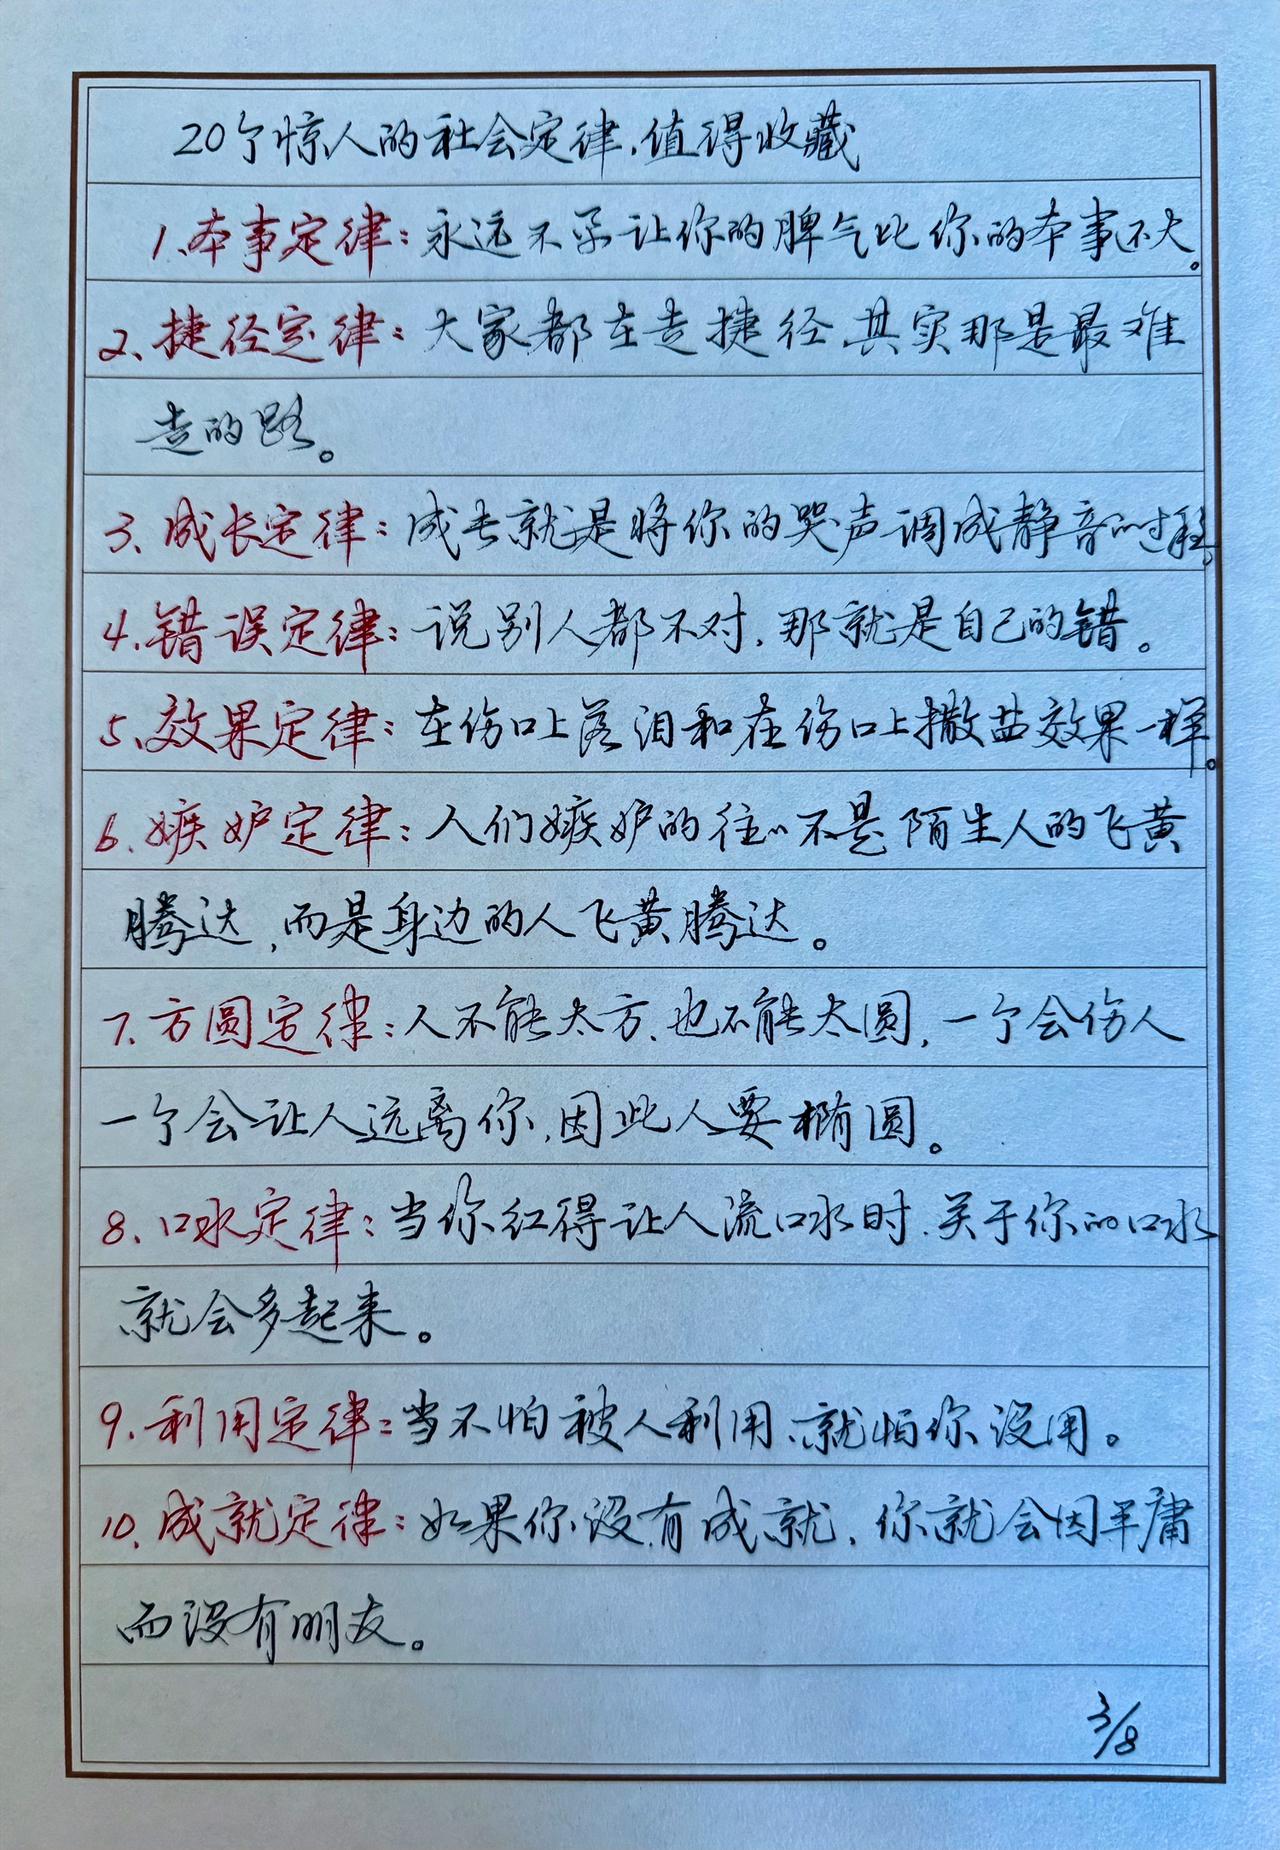 20个惊人的社会定律、值得收藏
1、本事定律：永远不要让你的脾气比你的本事不大。
2、捷径定律：大家都在走捷径、其实那是最难
走的路。
3、成长定律：成长就是将你的哭声调成静音的过程。
4、错误定律：说别人都不对，那就是自己的错。
5、效果定律：在伤口上落泪和在伤口上撒盐效果一样。
6、嫉妒定律：人们嫉妒的往〃不是陌生人的飞黄
腾达，而是身边的人飞黄腾达。
7、方圆定律：人不能太方、也不能太圆，一个会伤人
一个会让人远离你、因此人要椭圆。
8、口水定律：当你红得让人流口水时、关于你的口水
就会多起来。
9、利用定律：当不怕被人利用、就怕你没用。
10、成就定律：如果你没有成就，你就会因平庸
而没有朋友。
3/8